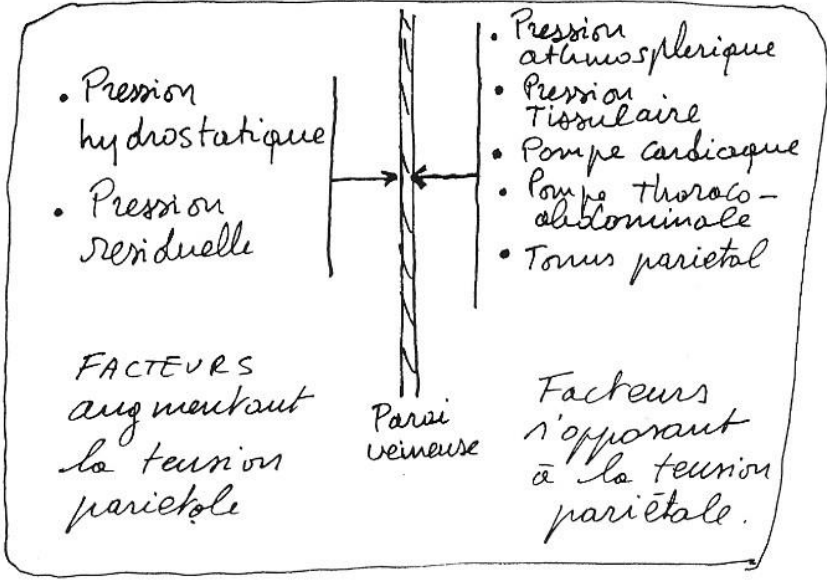 • Pression
hydrostatique
• Pression
residuelle
FACTEURS
augmentant
la tension
parietale
Paroi
veineuse
• Pression
athmosplerique
• Pression
Tissulaire
• Pompe Cardiaque
• Pompe Thoraco-
abdominale
• Tonus parietal
Facteurs
s'opposant
à la tension
pariétale.